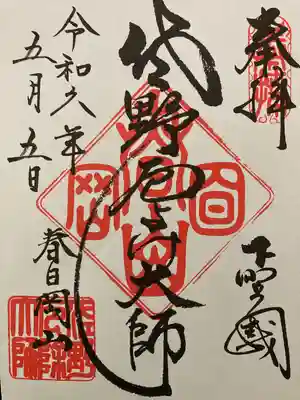 奉拝
下野國
佐野厄よけ大師
令和六年
五月五日
春日岡山